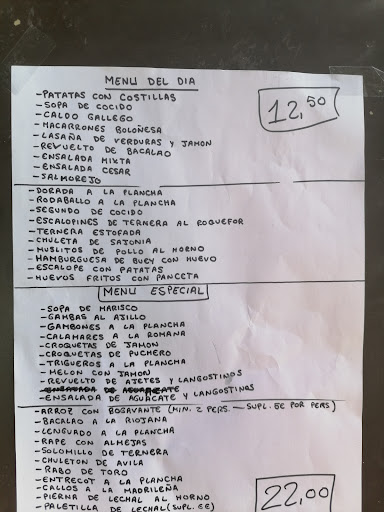 MENU DEL DIA
-PATATAS CON COSTILLAS
-SOPA DE COCIDO
-CALDO GALLEGO
-MACARRONES BOLOÑESA
-LASAÑA DE VERDURAS Y JAMON
-REVUELTO DE BACALAO
-ENSALADA MIXTA
-ENSALADA CESAR
-SALMOREJO
12,50
-DORADA A LA PLANCHA
-RODABALLO A LA PLANCHA
-SEGUNDO DE COCIDO
-ESCALOPINES DE TERNERA AL ROQUEFOR
-TERNERA ESTOFADA
-CHULETA DE SAJONIA
-MUSLITOS DE POLLO AL HORNO
-HAMBURGUESA DE BUEY CON HUEVO
-ESCALOPE CON PATATAS
-HUEVOS FRITOS CON PANCETA
MENU ESPECIAL
-SOPA DE MARISCO
-GAMBAS AL AJILLO
-GAMBONES A LA PLANCHA
-CALAMARES A LA ROMANA
-CROQUETAS DE JAMON
-CROQUETAS DE PUCHERO
-TRIGUEROS A LA PLANCHA
-MELON CON JAMON
-REVUELTO DE AJETES Y LANGOSTINOS
-ENSALADA DE AGUACATE Y LANGOSTINOS
-ARROZ CON BOGAVANTE (MIN. 2 PERS. - SUPL. 5€ POR PERS)
-BACALAO A LA RIOJANA
-LENGUADO A LA PLANCHA
-RAPE CON ALMEJAS
-SOLOMILLO DE TERNERA
-CHULETON DE AVILA
-RABO DE TORO
-ENTRECOT A LA PLANCHA
-CALLOS A LA MADRILEÑA
-PIERNA DE LECHAL AL HORNO
-PALETILLA DE LECHAL (SUPL. 5€)
22,00